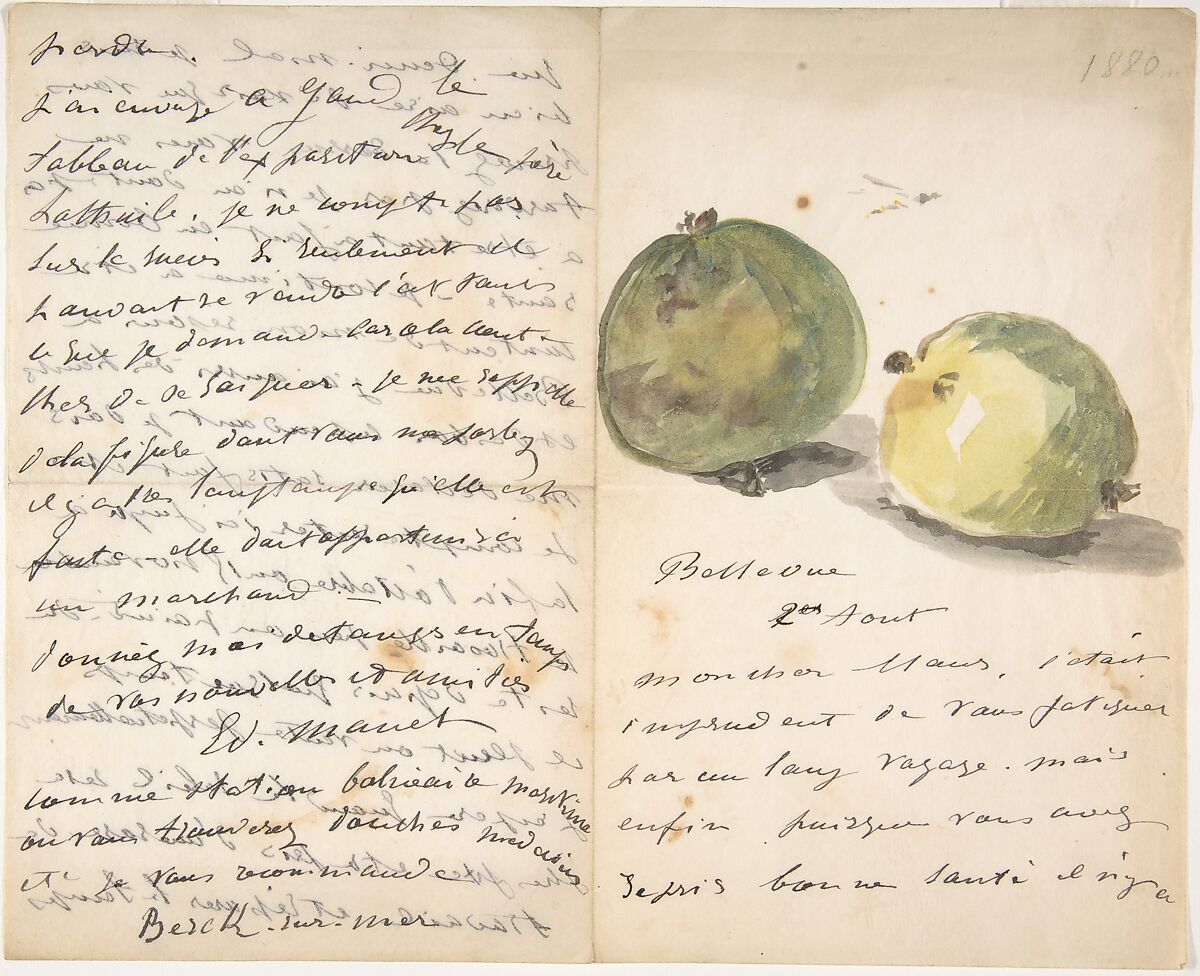 perdu.
J'ai envoyé a Gand le
tableau de l'exposition chez le père
Lathuile. je ne compte pas
sur le succès si seulement il
pouvait se vendre c'est tout
ce que je demande car a la
de se - je me rappelle
de la figure dont vous me parlez
il y a très longtemps qu'elle est
faite elle doit appartenir a
un marchand -
donnez moi de temps en temps
de vos nouvelles et amitiés
Ed. Manet
comme station balnéaire maritime
ou vous trouverez douches médecins
et je vous recommande
Berck-sur-mer
1880
Bellevue
2 Aout
mon cher Maus, c'était
imprudent de vous fatiguer
par un long voyage. mais
enfin puisque vous avez
repris bonne santé il n'y a